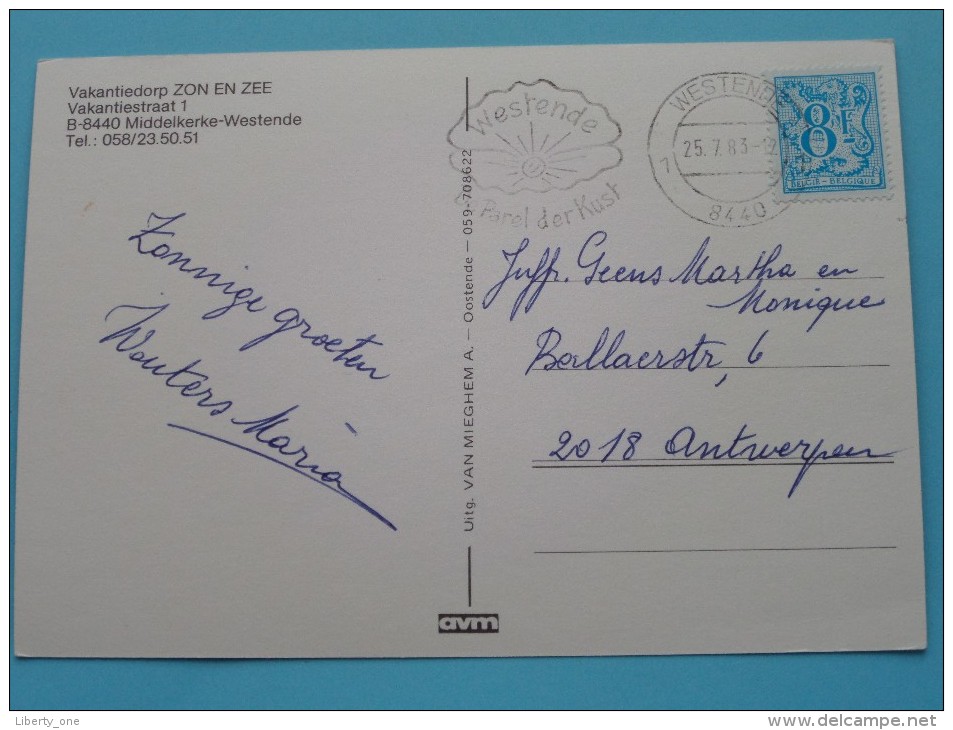 Vakantiedorp ZON EN ZEE
Vakantiestraat 1
B-8440 Middelkerke-Westende
Tel.: 058/23.50.51
Zonnige groeten
Wouters Maria
Uitg. VAN MIEGHEM A. — Oostende — 059-708622
avm
Westende
Parel der Kust
WESTENDE
1
25.7.83-
8440
8F
BELGIË-BELGIQUE
Juffr. Geens Martha en
Monique
Ballaerstr, 6
2018 Antwerpen
Liberty_one
www.delcampe.net